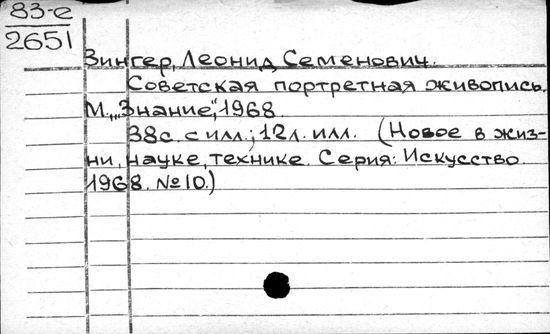 83-е
2651
Зингер, Леонид Семенович.
Советская портретная живопись.
М., „Знание", 1968.
38с. с илл.; 12л. илл. (Новое в жиз-
ни, науке, технике. Серия: Искусство.
1968. №10.)